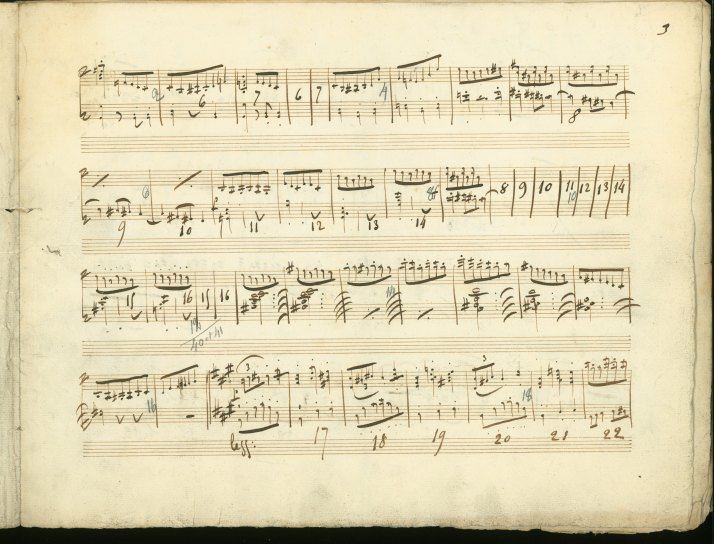 3
6 7 6 7 4
8
6 8 9 10 11 12 13 14
9 10 11 12 13 14
15 16 15 16
40 et 41
16 18
legg: 17 18 19 20 21 22